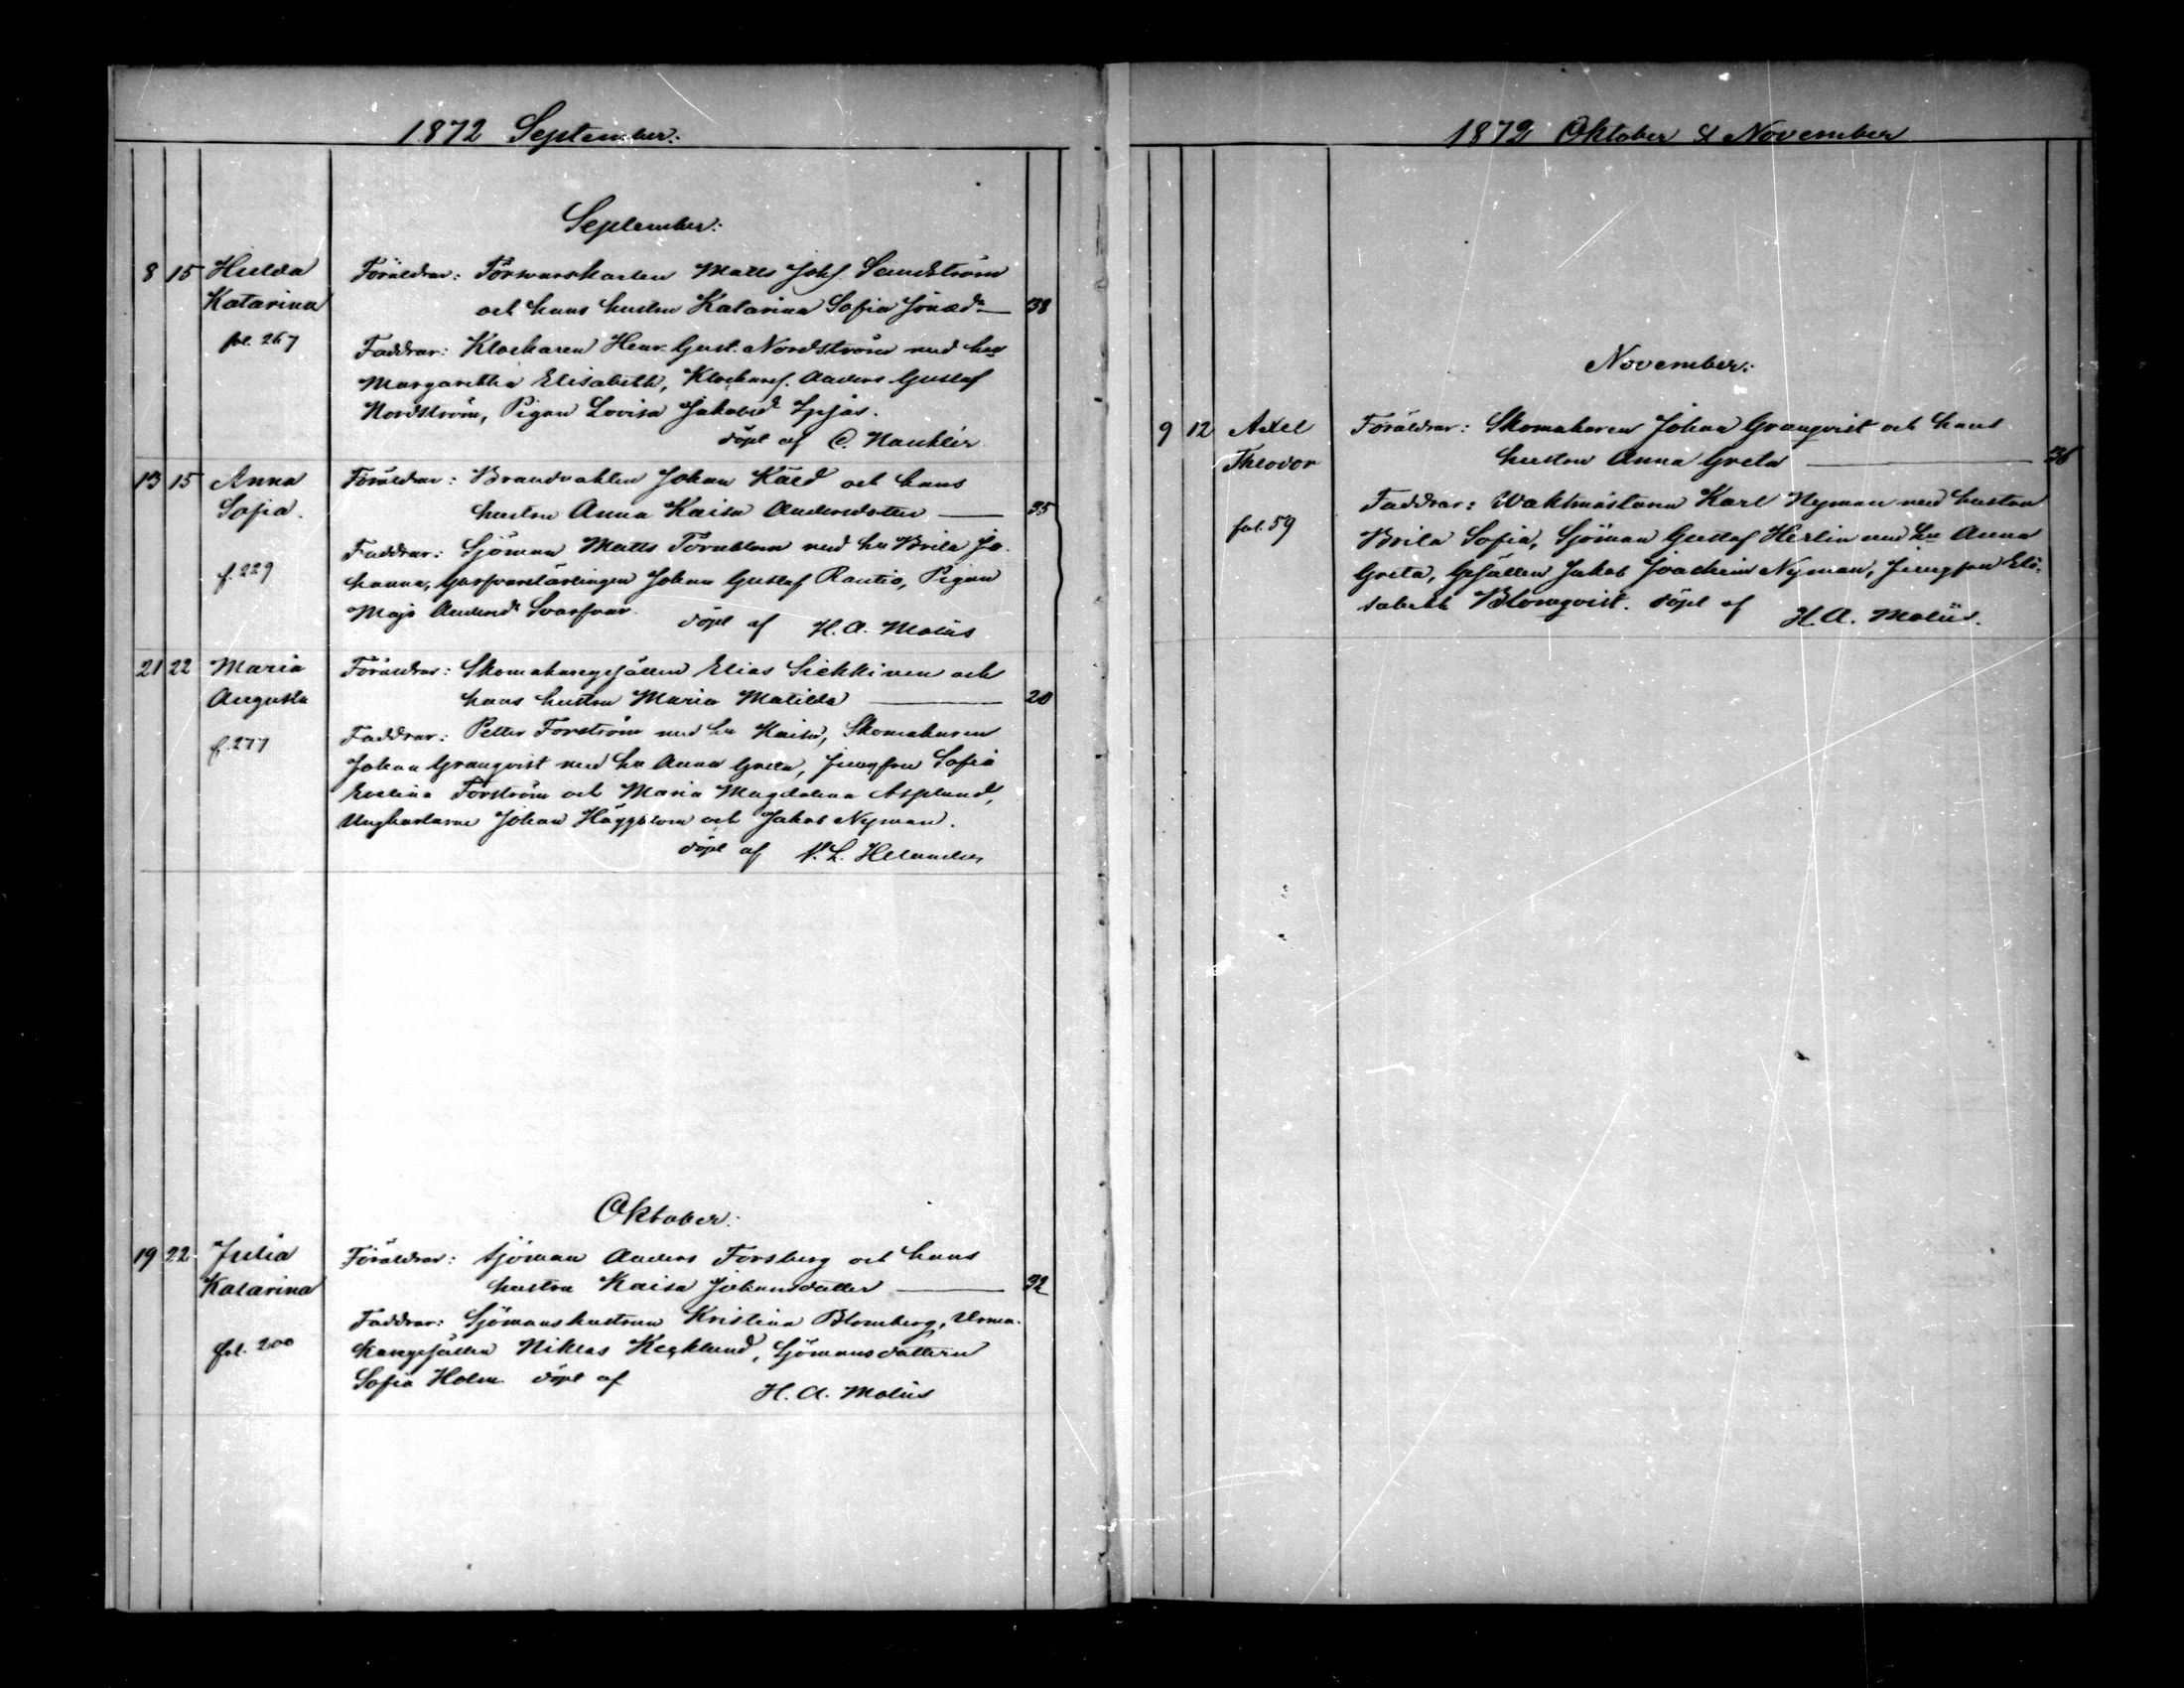 1872 September:
September:
8 15 Hulda Föräldrar: Försvarskarlen Matts Johs. Sandström
Katarina och hans hustru Katarina Sofia Jonæd:r — 38
fol. 267 Faddrar: Klockaren Henr. Gust. Nordström med hu
Margaretha Elisabeth, Klockares. Anders Gustaf
Nordström, Pigan Lovisa Jakobsd.
döpt af C. Nauklér
13 15 Anna Föräldrar: Brandvakten Johan Käld och hans
Sofia. hustru Anna Kaisa Andersdotter — 35
f. 229 Faddrar: Sjöman Matts Törnblom med hu Brita Jo-
hanna, Garfvarelärlingen Johan Gustaf Rantio, Pigan
Maja Andersdr Svarfvar. döpt af H. A. Moliis
21 22 Maria Föräldrar: Skomakaregesällen Elias Sickkinen och
Augusta hans hustru Maria Matilda — 20
f. 277 Faddrar: Petter Forström med hu Kaisa, Skomakaren
Johan Granqvist med hu Anna Greta, Jungfru Sofia
Evelina Forström och Maria Magdalena Asplund,
Ungkarlarne Johan Häggblom och Jakob Nyman.
döpt af N. L. Helander
Oktober:
19 22 Julia Föräldrar: Sjöman Anders Forsberg och hans
Katarina hustru Kaisa Johansdotter — 32
fol. 200 Faddrar: Sjömanshustrun Kristina Blomberg, Urma-
karegesällen Niklas Kecklund, Sjömansdottern
Sofia Holm döpt af H. A. Moliis
1872 Oktober & November
November:
9 12 Axel Föräldrar: Skomakaren Johan Granqvist och hans
Theodor hustru Anna Greta — 36
fol. 59 Faddrar: Waktmästaren Karl Nyman med hustru
Brita Sofia, Sjöman Gustaf Herlin med hu Anna
Greta, Gesällen Jakob Joachim Nyman, Jungfru Eli-
sabeth Blomqvist. döpt af H. A. Moliis.